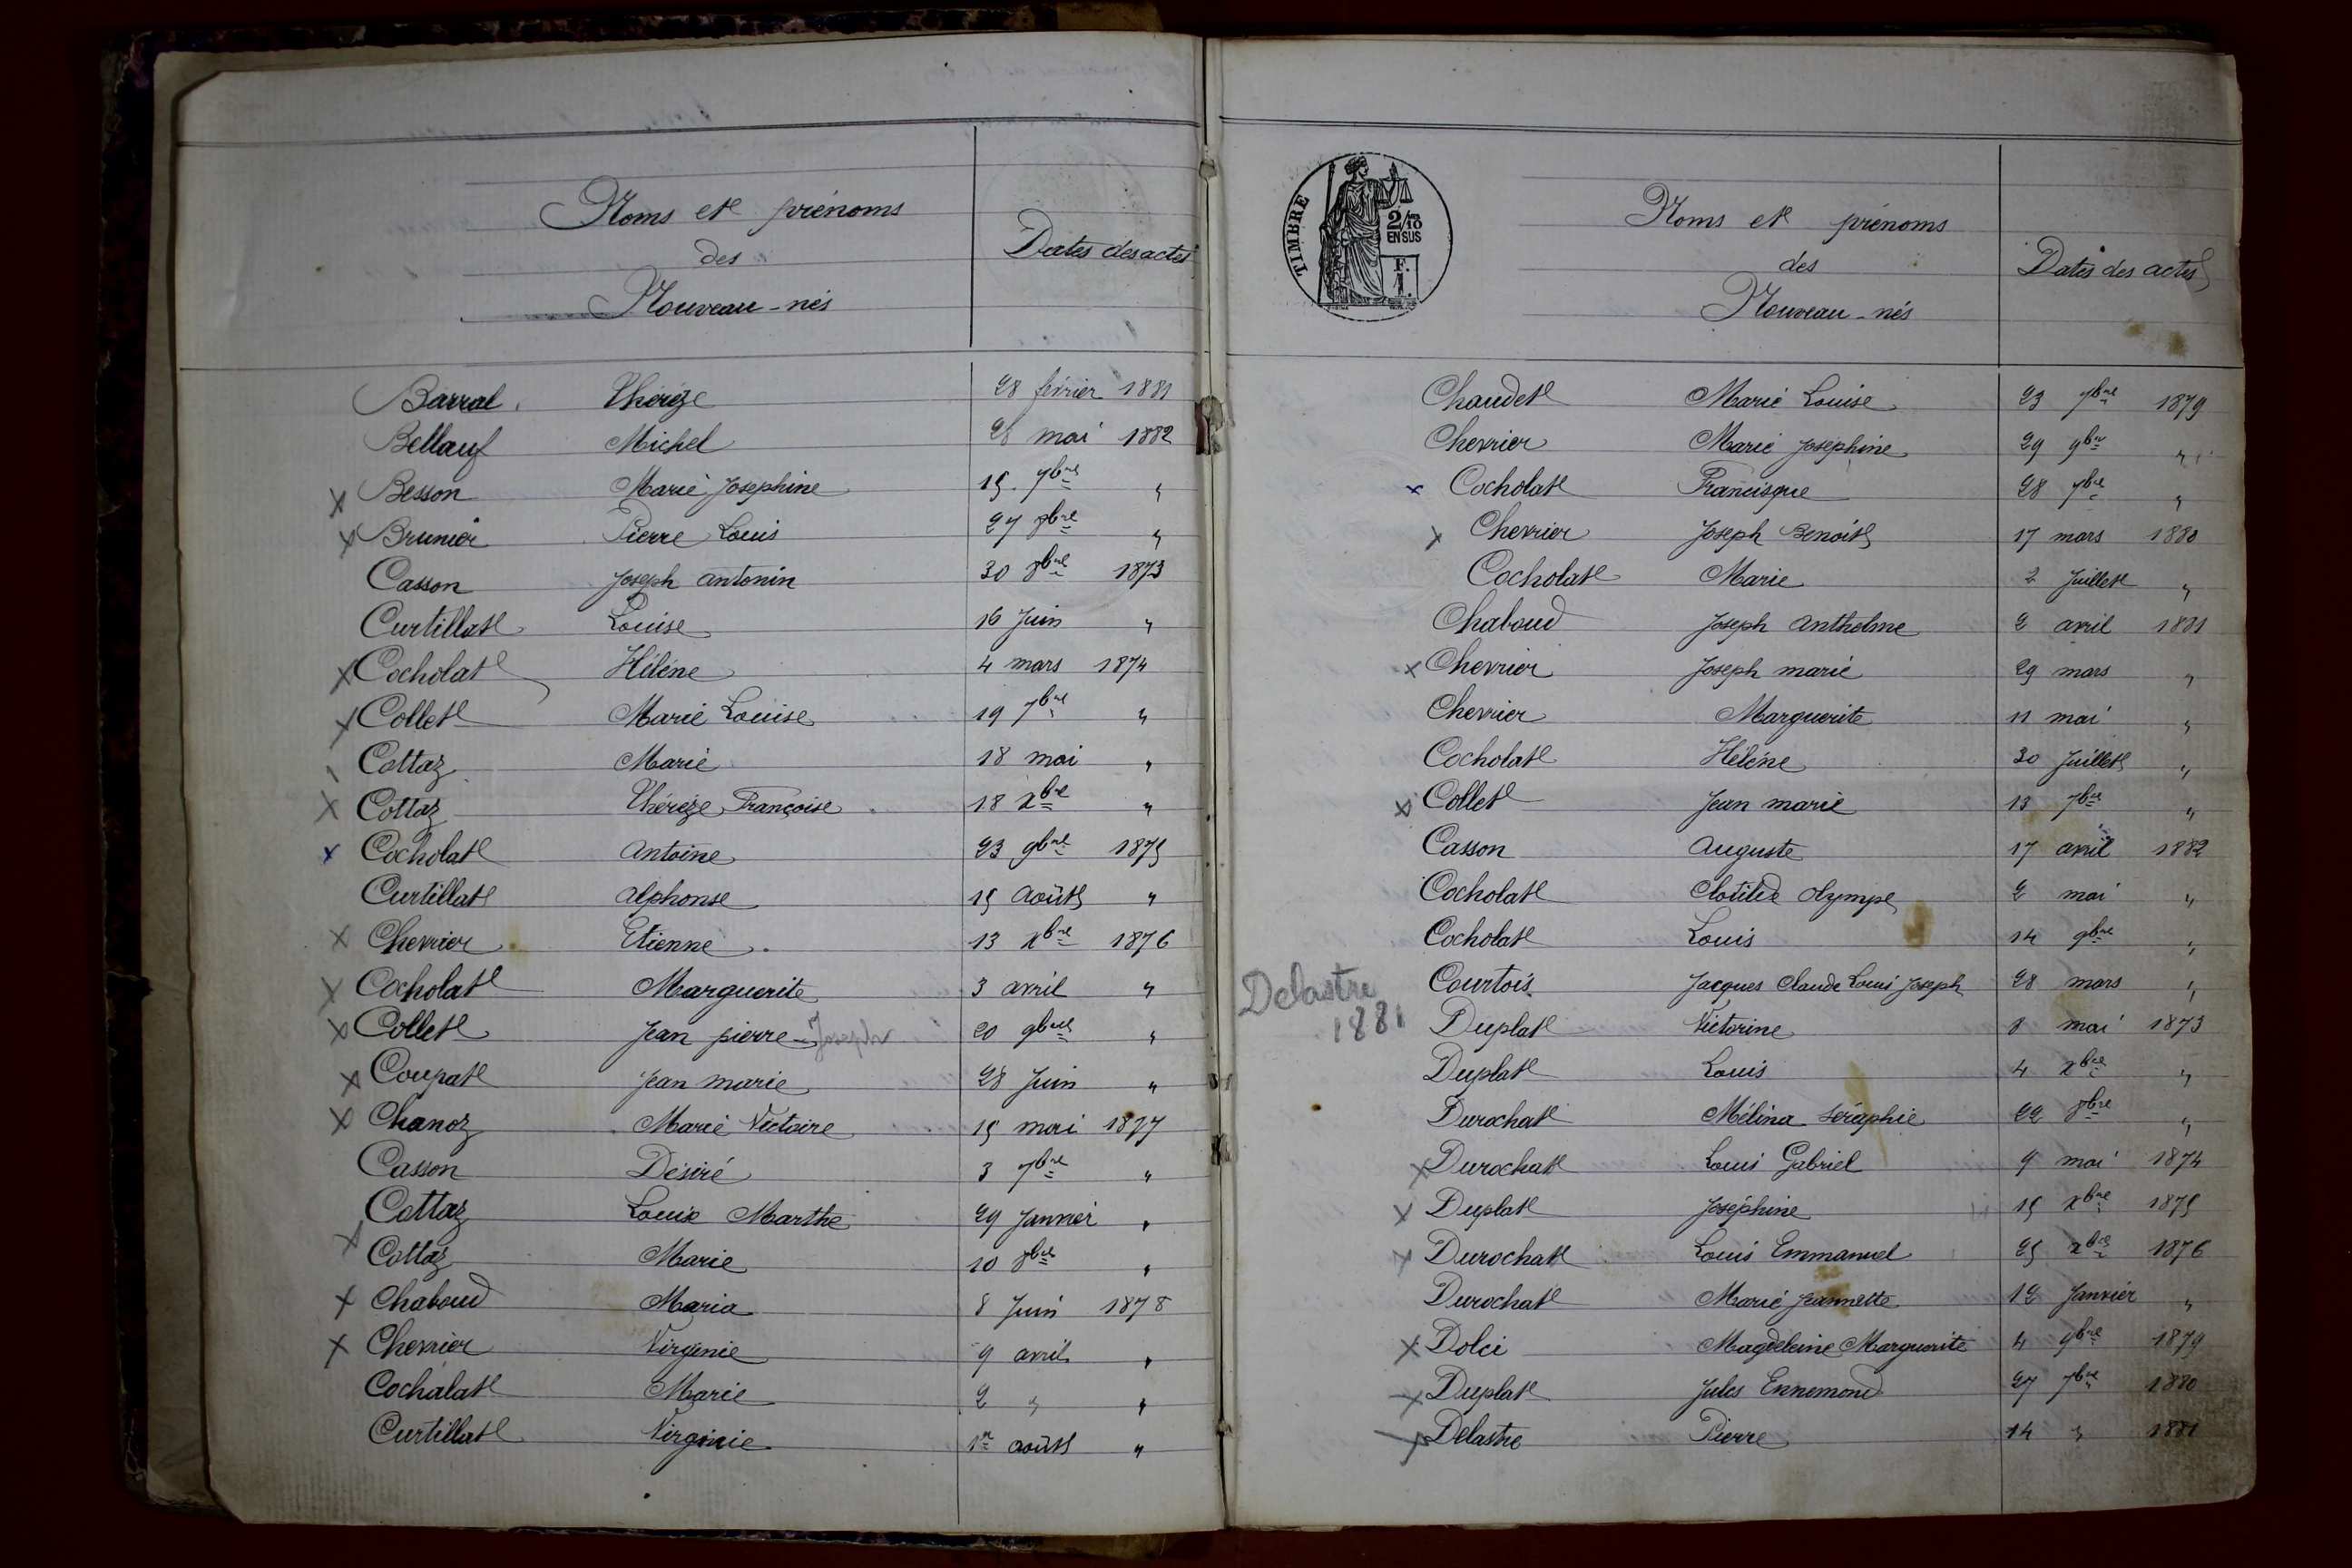 Noms et prénoms
des
Nouveau-nés
Dates des actes
Barral Thérèze 28 février 1881
Bellauf Michel 28 mai 1882
x Besson Marie Joséphine 15 7bre "
x Brunier Pierre Louis 27 8bre "
Casson Joseph antonin 30 8bre 1873
Curtillat Louise 16 Juin "
x Cocholat Hélène 4 mars 1874
x Collet Marie Louise 19 7bre "
Cottaz Marie 18 mai "
x Cottaz Thérèze Françoise 18 xbre "
x Cocholat Antoine 23 9bre 1875
Curtillat alphonse 15 Août "
x Chevrier Etienne 13 xbre 1876
x Cocholat Marguerite 3 avril "
x Collet Jean pierre Joseph 20 9bre "
x Coupat Jean marie 28 Juin "
x Chanoz Marie Victoire 15 mai 1877
Casson Désiré 3 7bre "
Cottaz Louise Marthe 29 Janvier "
x Cottaz Marie 10 8bre "
x Chaboud Maria 8 Juin 1878
x Chevrier Virginie 9 avril "
Cochalat Marie 2 " "
Curtillat Virginie 1er août "
TIMBRE
2/10
EN SUS
F.
1.
Noms et prénoms
des
Nouveau-nés
Dates des actes
Chaudet Marie Louise 23 7bre 1879
Chevrier Marie Joséphine 29 9bre "
x Cocholat Francisque 28 7bre "
x Chevrier Joseph Benoit 17 mars 1880
Cocholat Marie 2 Juillet "
Chaboud Joseph Anthelme 2 avril 1881
x Chevrier Joseph marie 29 mars "
Chevrier Marguerite 11 mai "
Cocholat Hélène 30 Juillet "
x Collet Jean marie 13 7bre "
Casson Auguste 17 avril 1882
Cocholat Clotilde Olympe 2 mai "
Cocholat Louis 14 9bre "
Courtois Jacques Claude Louis Joseph 28 mars "
Delastre
1881
Duplat Victorine 8 mai 1873
Duplat Louis 4 xbre "
Durochat Mélina Séraphie 22 8bre "
x Durochat Louis Gabriel 9 mai 1874
x Duplat Joséphine 15 xbre 1875
x Durochat Louis Emmanuel 25 xbre 1876
Durochat Marie Jeannette 12 Janvier "
x Dolci Magdeleine Marguerite 4 9bre 1879
x Duplat Jules Ennemond 27 7bre 1880
x Delastre Pierre 14 " 1881